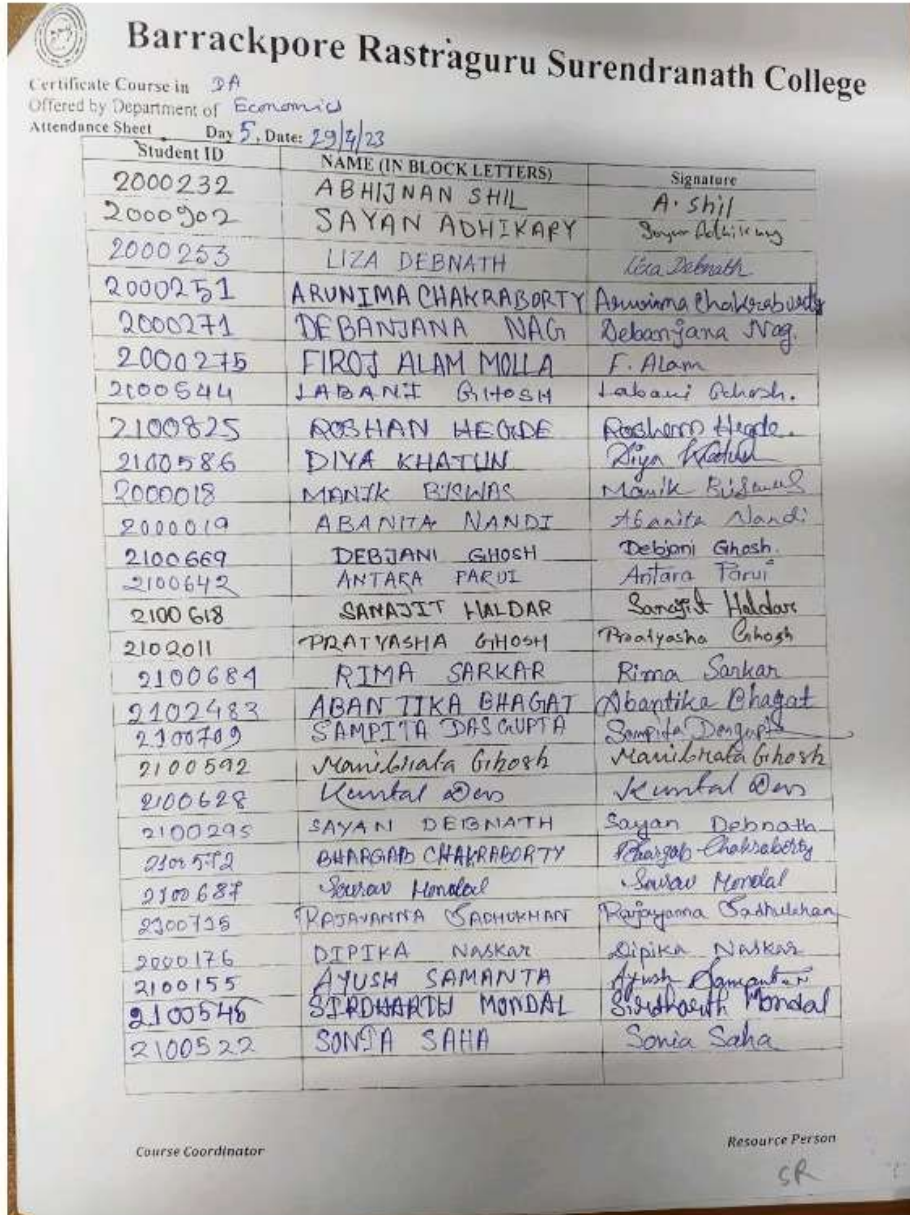 Barrackpore Rastraguru Surendranath College
Certificate Course in DA
Offered by Department of Economics
Attendance Sheet Day 5, Date: 29/4/23
Student ID NAME (IN BLOCK LETTERS) Signature
2000232 ABHIJNAN SHIL A. Shil
2000902 SAYAN ADHIKARY Sayan Adhikary
2000253 LIZA DEBNATH Liza Debnath
2000251 ARUNIMA CHAKRABORTY Arunima Chakraborty
2000271 DEBANJANA NAG Debanjana Nag.
2000275 FIROJ ALAM MOLLA F. Alam
2100544 LABANI GHOSH Labani Ghosh.
2100825 ROSHAN HEGDE Roshan Hegde.
2100586 DIYA KHATUN Diya Khatun
2000018 MANIK BISWAS Manik Biswas
2000019 ABANITA NANDI Abanita Nandi
2100669 DEBJANI GHOSH Debjani Ghosh.
2100642 ANTARA PARUI Antara Parui
2100618 SANAJIT HALDAR Sanajit Haldar
2102011 PRATYASHA GHOSH Pratyasha Ghosh
2100684 RIMA SARKAR Rima Sarkar
2102483 ABANTIKA BHAGAT Abantika Bhagat
2100709 SAMPITA DASGUPTA Sampita Dasgupta
2100592 Manibrata Ghosh Manibrata Ghosh
2100628 Kuntal Das Kuntal Das
2100295 SAYAN DEBNATH Sayan Debnath
BHARGAB CHAKRABORTY Bhargab Chakraborty
2100687 Sourav Mondal Sourav Mondal
RAJAYANNA SADHUKHAN Rajayanna Sadhukhan
2000176 DIPIKA Naskar Dipika Naskar
2100155 AYUSH SAMANTA Ayush Samanta
2100546 SIDDHARTH MONDAL Siddharth Mondal
2100522 SONIA SAHA Sonia Saha
Course Coordinator Resource Person
SR